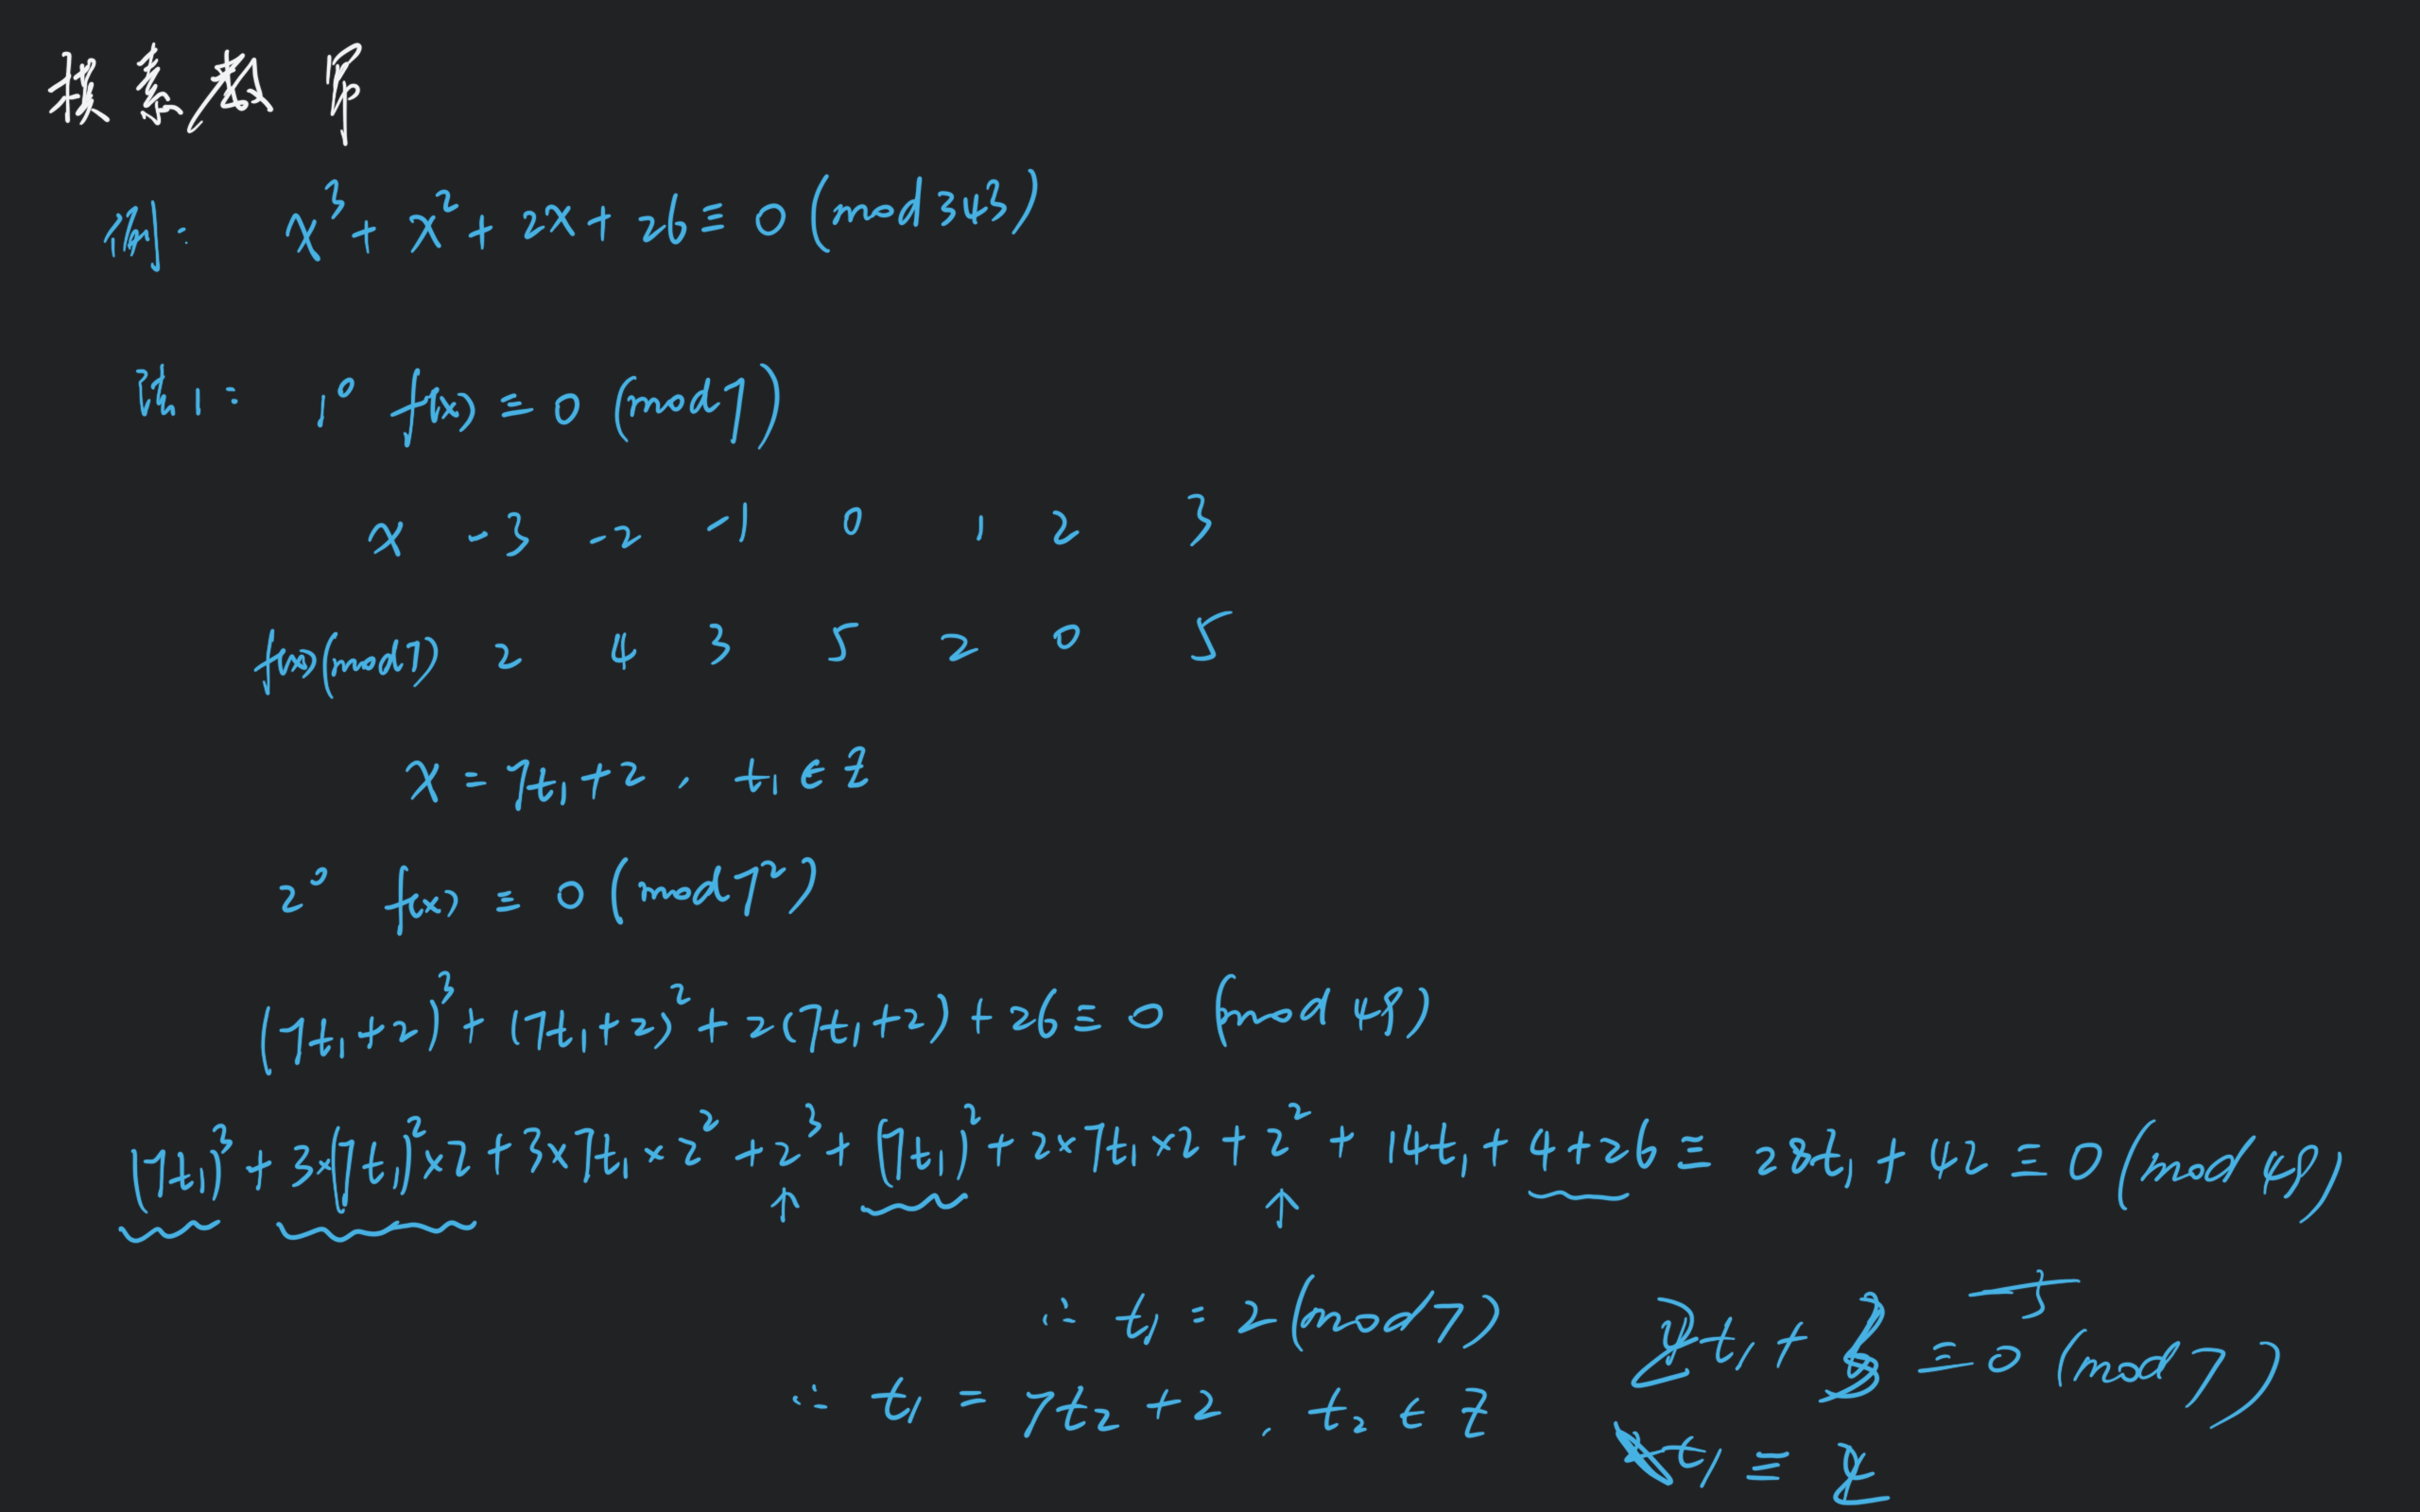 模素数幂
例: x³ + x² + 2x + 26 ≡ 0 (mod 343)
法1: 1° f(x) ≡ 0 (mod 7)
x -3 -2 -1 0 1 2 3
f(x)(mod 7) 2 4 3 5 2 0 5
x = 7t₁ + 2, t₁ ∈ Z
2° f(x) ≡ 0 (mod 7²)
(7t₁+2)³ + (7t₁+2)² + 2(7t₁+2) + 26 ≡ 0 (mod 49)
(7t₁)³ + 3×(7t₁)²×2 + 3×7t₁×2² + 2³ + (7t₁)² + 2×7t₁×2 + 2² + 14t₁ + 4+26 ≡ 28t₁ + 42 ≡ 0 (mod 49)
∴ t₁ = 2 (mod 7) t₁ + ≡ 0 (mod 7)
∴ t₁ = 7t₂ + 2, t₂ ∈ Z t₁ ≡